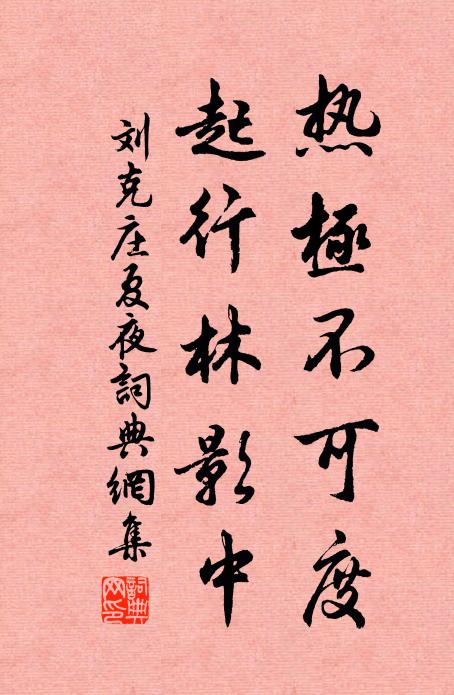 热極不可度
起行林影中
刘克庄夏夜詞典網集
詞典網印